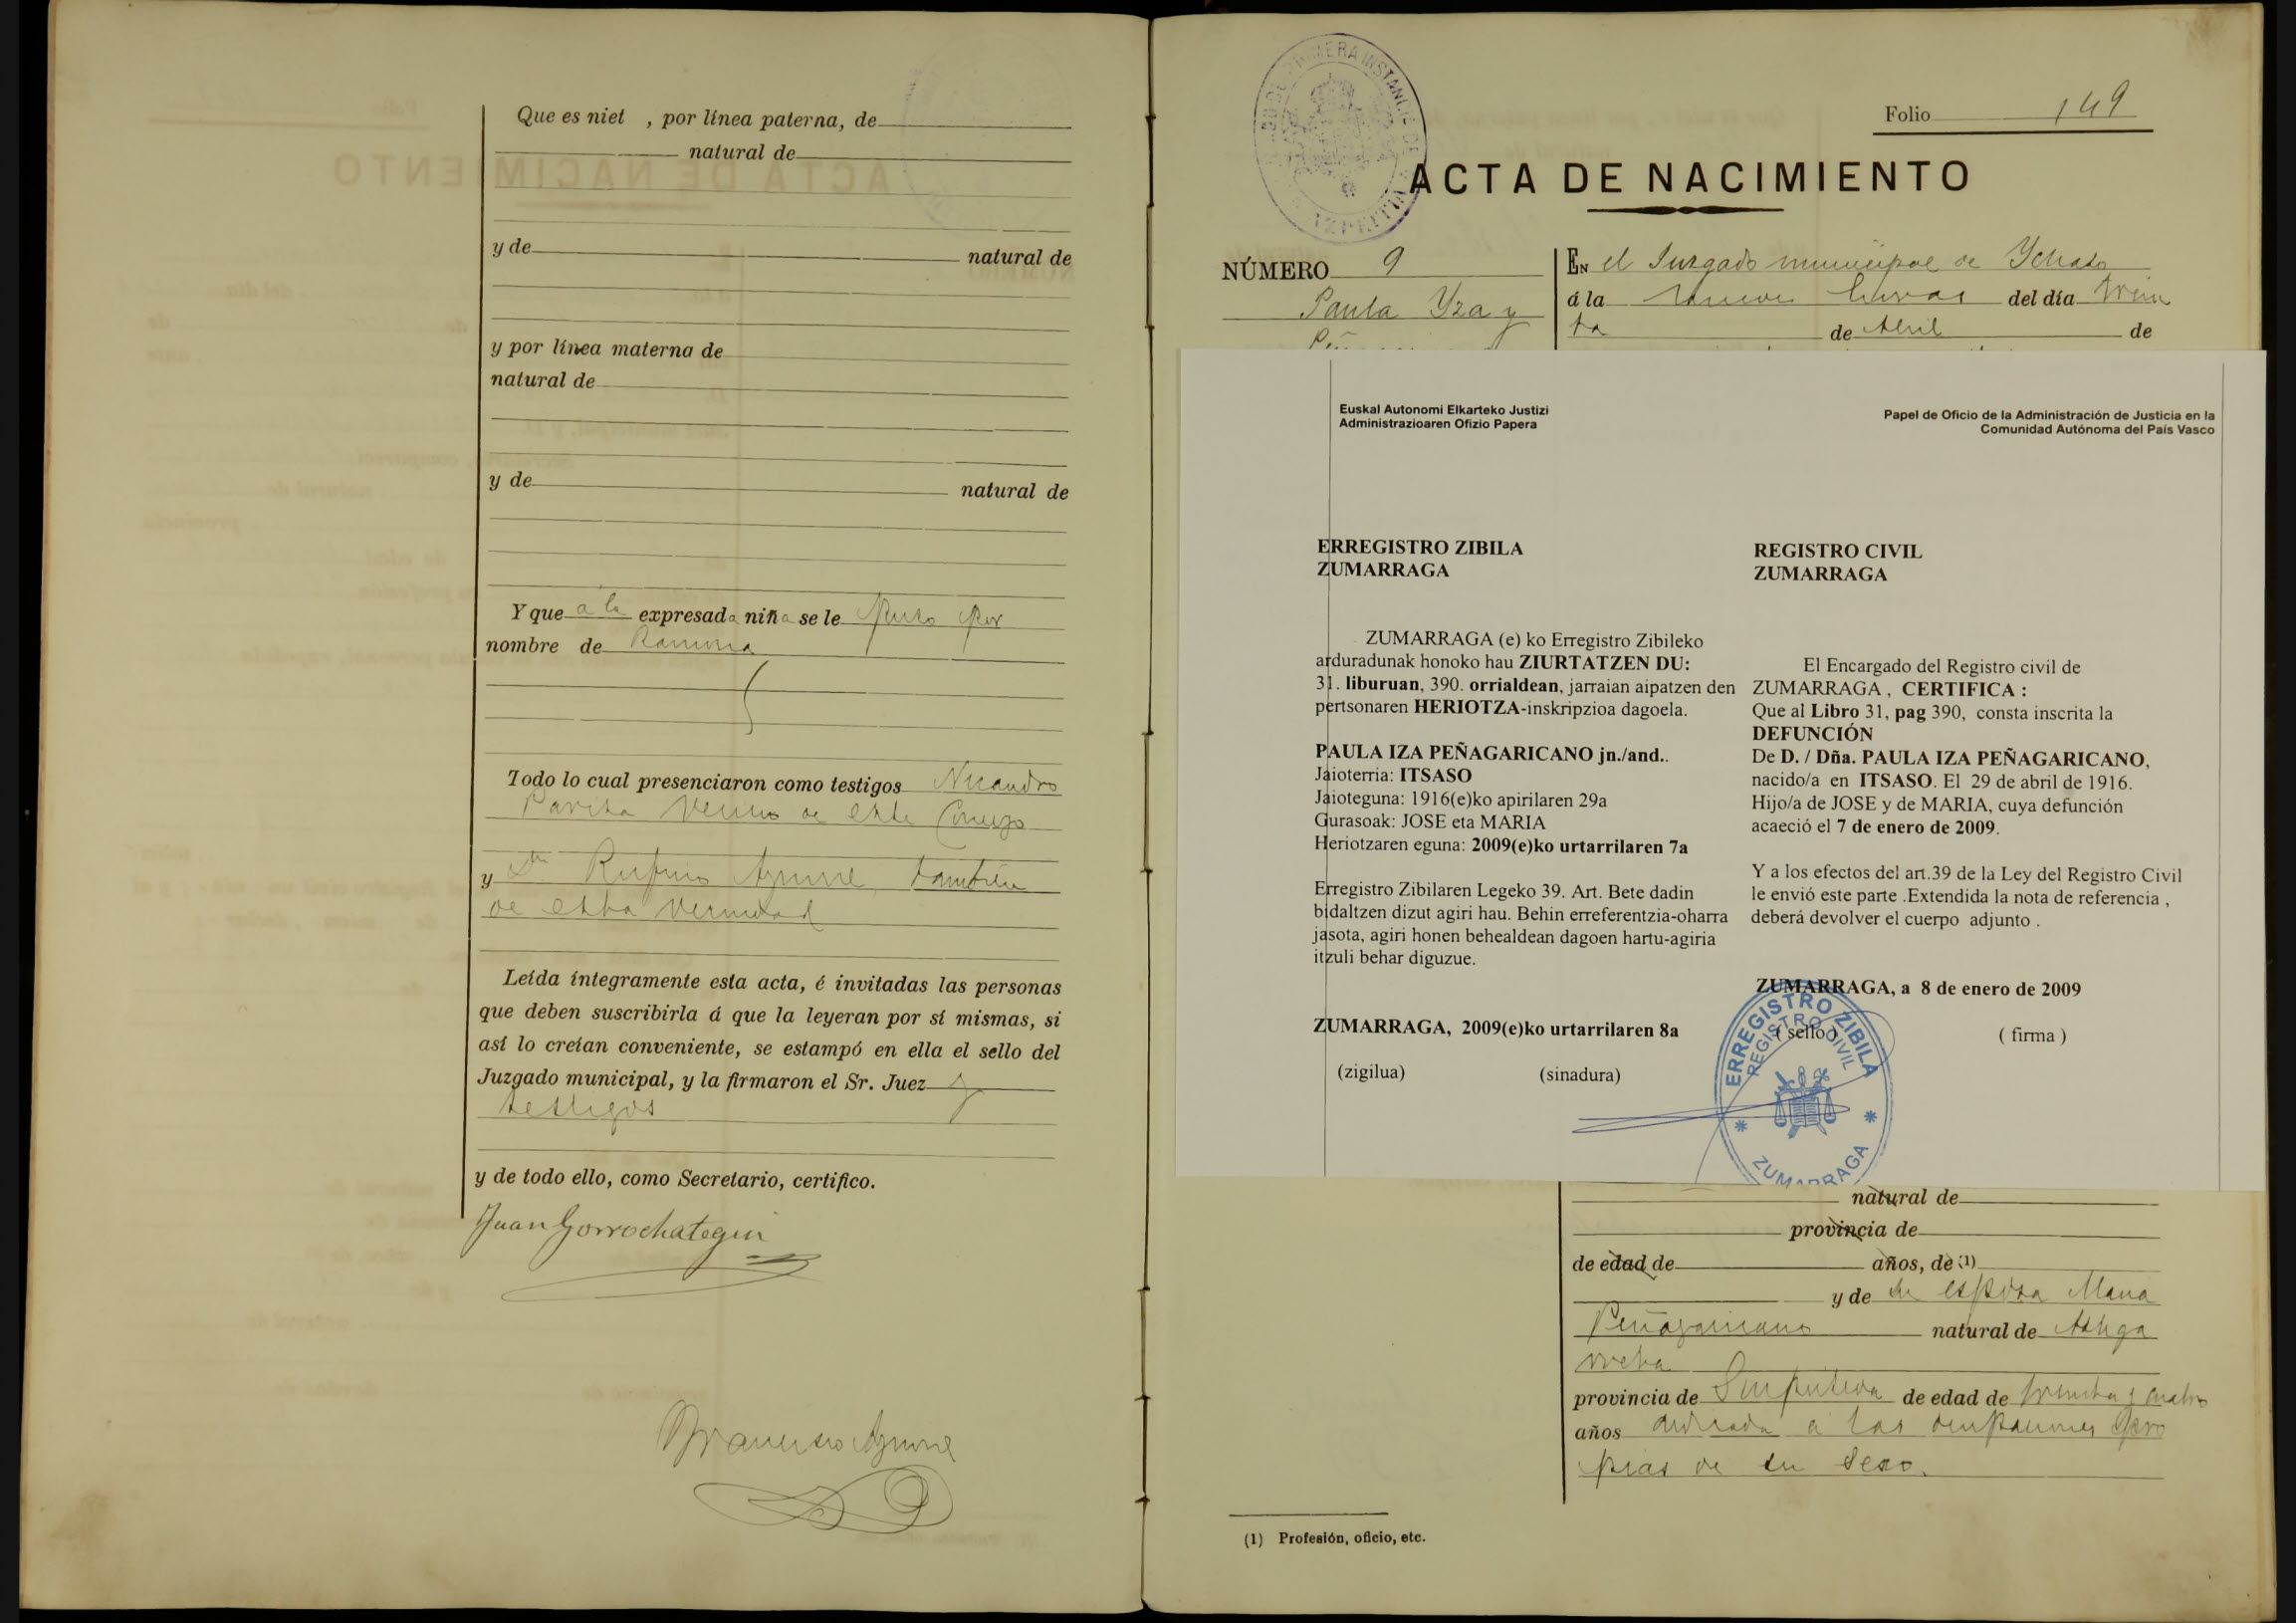 Que es niet , por línea paterna, de
natural de
y de natural de
y por línea materna de
natural de
y de natural de
Y que a la expresada niña se le puso por
nombre de Ramona
Todo lo cual presenciaron como testigos Nicandro
vecino de este Concejo
y Dn Rufino Aguirre, también
de esta vecindad
Leída íntegramente esta acta, é invitadas las personas
que deben suscribirla á que la leyeran por sí mismas, si
así lo creían conveniente, se estampó en ella el sello del
Juzgado municipal, y la firmaron el Sr. Juez y
testigos
y de todo ello, como Secretario, certifico.
Juan Gorrochategui
Francisco Aguirre
Folio 149
ACTA DE NACIMIENTO
NÚMERO 9
Paula Yza y
EN el Juzgado municipal de Ychaso
á la nueve horas del día trein
ta de Abril de
Euskal Autonomi Elkarteko Justizi
Administrazioaren Ofizio Papera
Papel de Oficio de la Administración de Justicia en la
Comunidad Autónoma del País Vasco
ERREGISTRO ZIBILA
ZUMARRAGA
ZUMARRAGA (e) ko Erregistro Zibileko
arduradunak honoko hau ZIURTATZEN DU:
31. liburuan, 390. orrialdean, jarraian aipatzen den
pertsonaren HERIOTZA-inskripzioa dagoela.
PAULA IZA PEÑAGARICANO jn./and..
Jaioterria: ITSASO
Jaioteguna: 1916(e)ko apirilaren 29a
Gurasoak: JOSE eta MARIA
Heriotzaren eguna: 2009(e)ko urtarrilaren 7a
Erregistro Zibilaren Legeko 39. Art. Bete dadin
bidaltzen dizut agiri hau. Behin erreferentzia-oharra
jasota, agiri honen behealdean dagoen hartu-agiria
itzuli behar diguzue.
ZUMARRAGA, 2009(e)ko urtarrilaren 8a
(zigilua) (sinadura)
REGISTRO CIVIL
ZUMARRAGA
El Encargado del Registro civil de
ZUMARRAGA , CERTIFICA :
Que al Libro 31, pag 390, consta inscrita la
DEFUNCIÓN
De D. / Dña. PAULA IZA PEÑAGARICANO,
nacido/a en ITSASO. El 29 de abril de 1916.
Hijo/a de JOSE y de MARIA, cuya defunción
acaeció el 7 de enero de 2009.
Y a los efectos del art.39 de la Ley del Registro Civil
le envió este parte .Extendida la nota de referencia ,
deberá devolver el cuerpo adjunto .
ZUMARRAGA, a 8 de enero de 2009
( sello) ( firma )
ERREGISTRO ZIBILA
REGISTRO CIVIL
ZUMARRAGA
natural de
provincia de
de edad de años, de (1)
y de su esposa Maria
Peñagaricano natural de Astiga
rreta
provincia de Guipúzcoa de edad de treinta y cuatro
años dedicada a las ocupaciones pro
pias de su sexo.
(1) Profesión, oficio, etc.